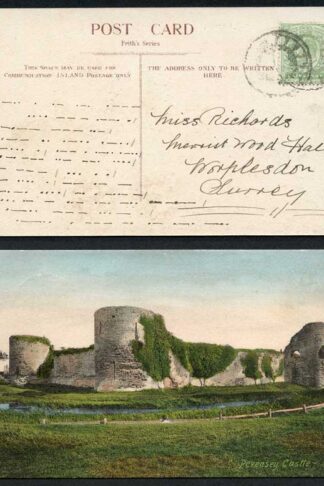 POST CARD
Frith's Series
THIS SPACE MAY BE USED FOR
COMMUNICATION INLAND POSTAGE ONLY
THE ADDRESS ONLY TO BE WRITTEN
HERE
Miss Richards
Merrist Wood Hall
Worplesdon
Surrey
Pevensey Castle